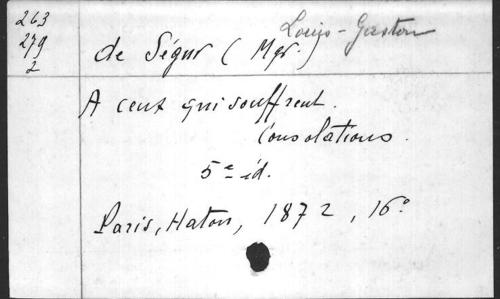 263
279
2
Louis-Gaston
de Ségur (Mgr.)
A ceux qui souffrent.
Consolations.
5e éd.
Paris, Haton, 1872, 16°